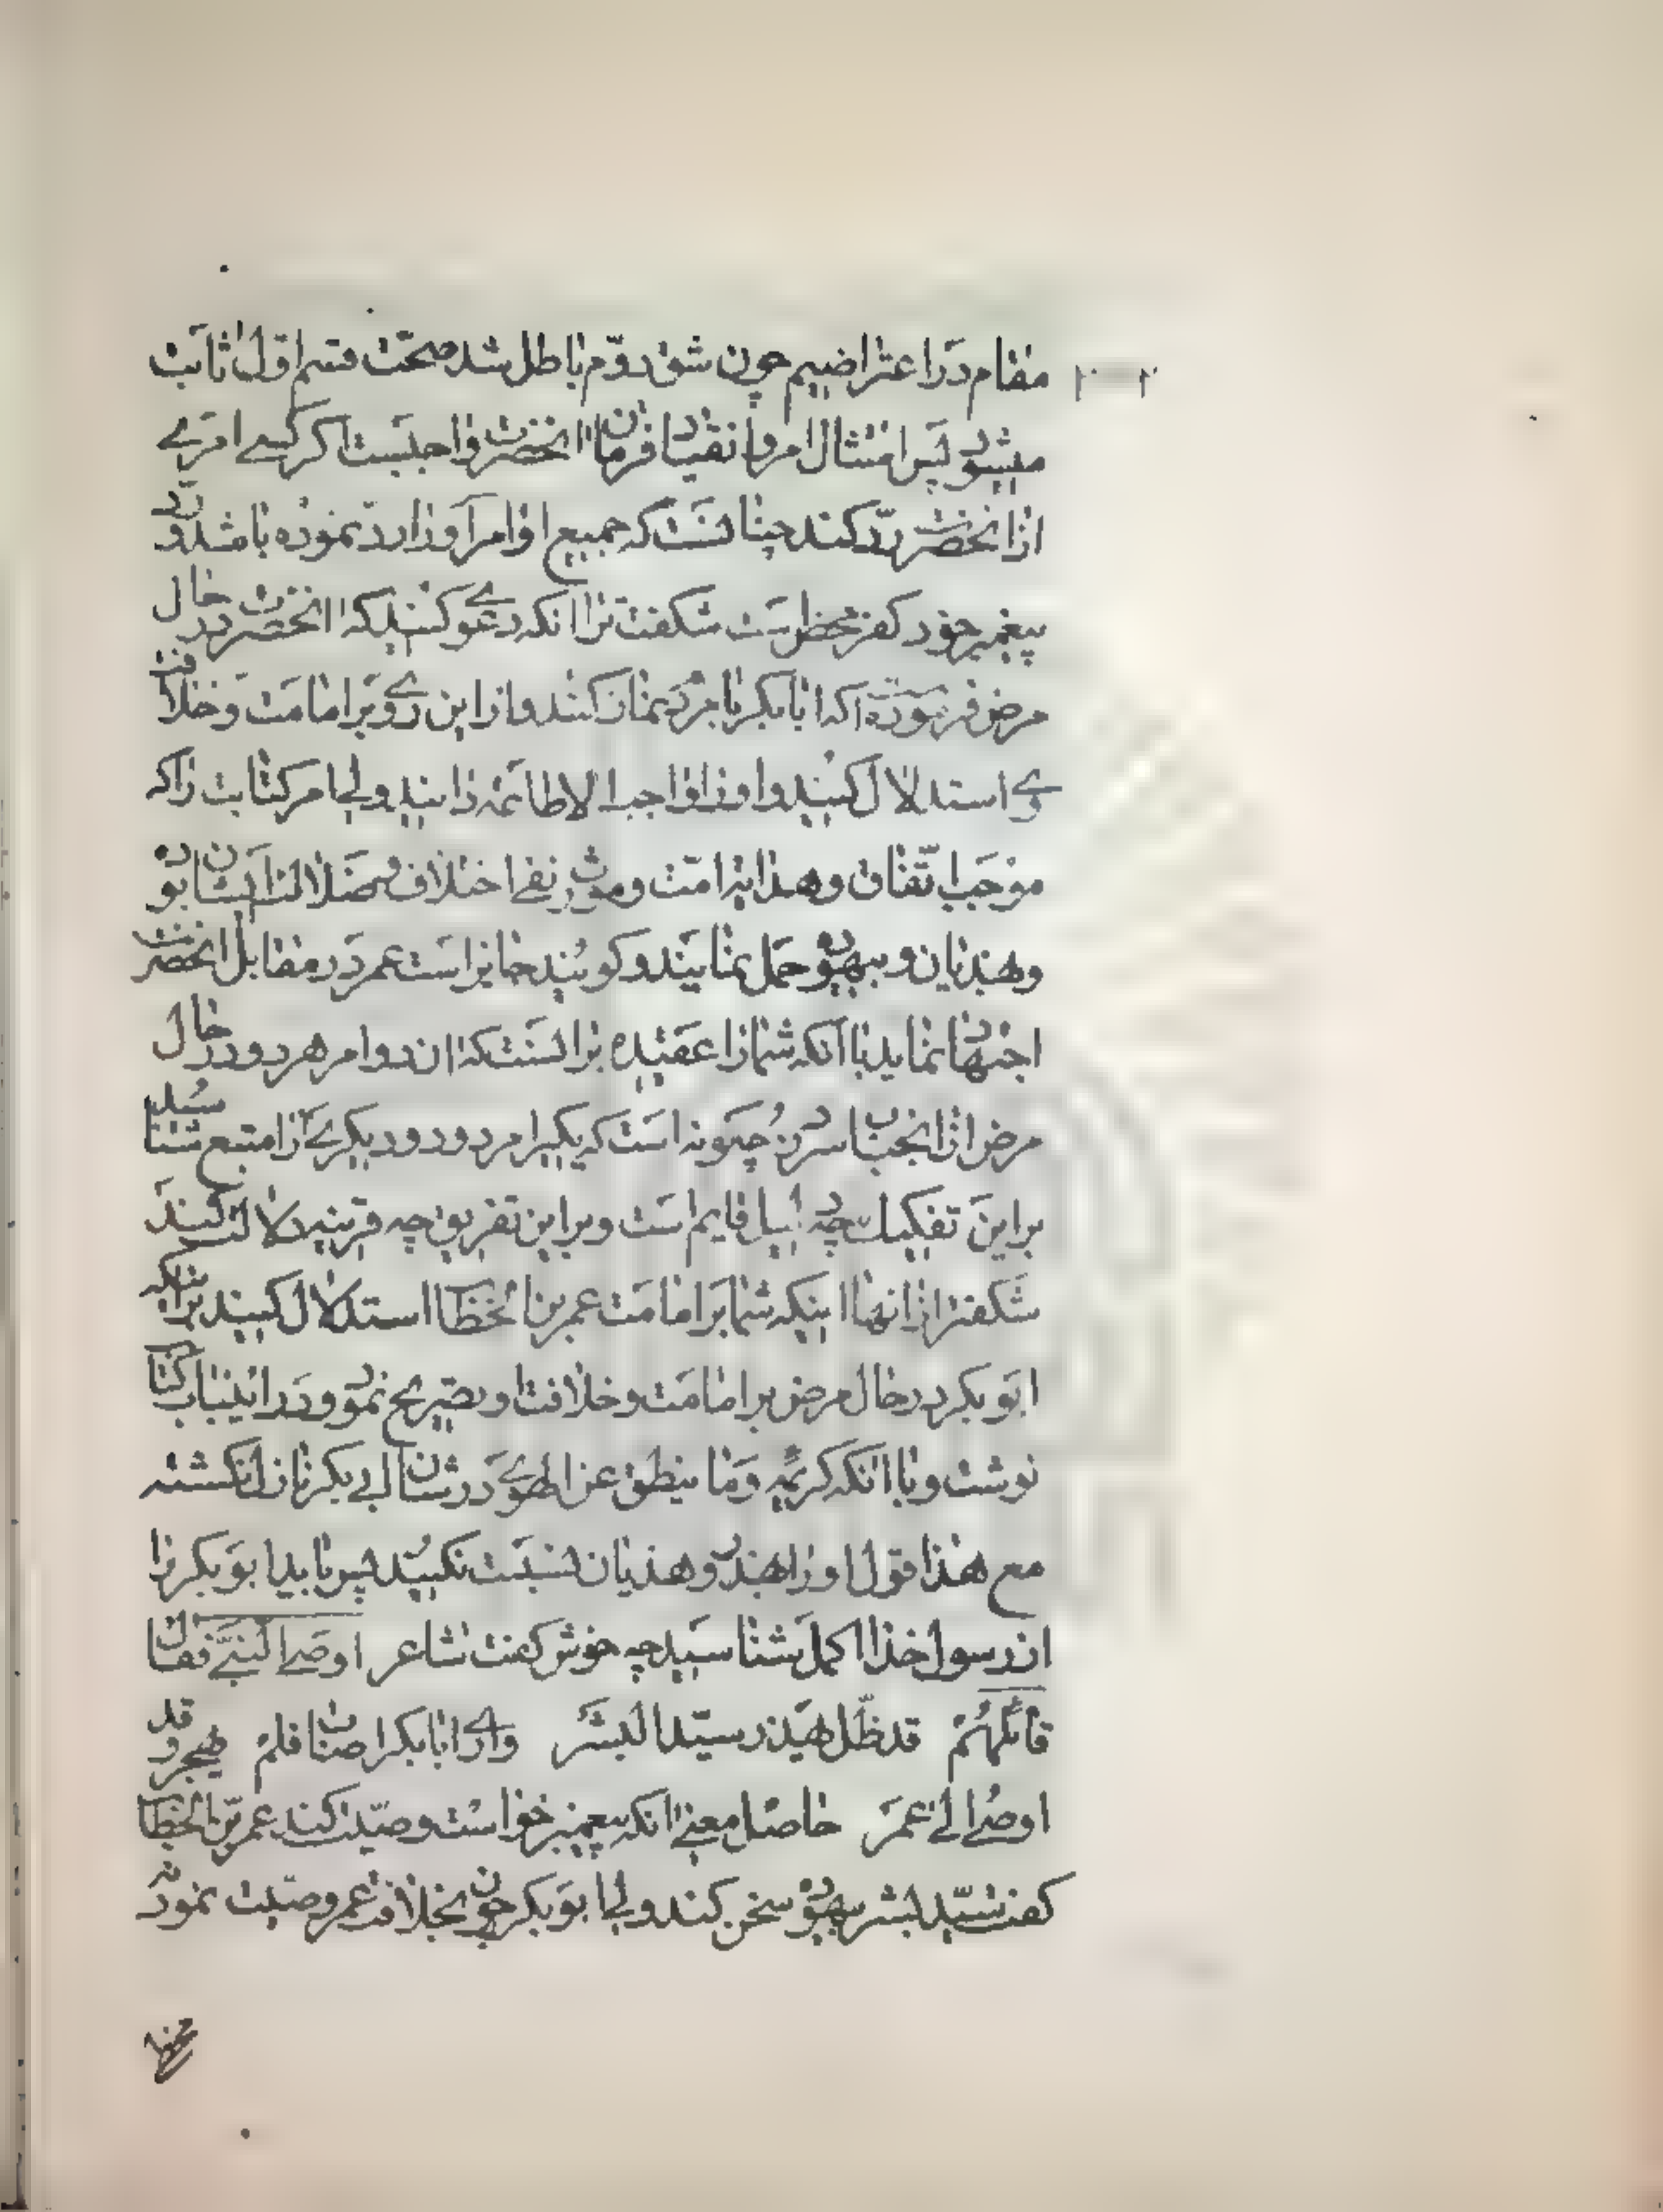 مقام در اعتراضیم چون شق دوّم باطل شد صحّت قسم اوّل ثابت
میشود پس امتثال امر و انقیاد فرمان آنحضرت واجبست اگر کسے امرے
از آنحضرت ردّ کند چنانست که جمیع اوامر او را ردّ نموده باشد و ردّ
پیغمبر خود کفر محض است شگفت‌تر آنکه دعوے کنید که آنحضرت در حال
مرض فرموده که ابابکر با مردم نماز کند و از این روے بر امامت و خلافت
وے استدلال کنید و او را واجب الاطاعه دانید ولی امر کتابت را که
موجب اتّفاق و هدایه امّت و مورث نفے اختلاف و ضلالت ایشان بوده
و هذیان و بیهوده حمل نمایند و گویند جایز است عمر در مقابل آنحضرت
اجتهاد نماید با آنکه شما را عقیده بر آنست که آن دو امر هر دو در حال
مرض از آنجناب سر زد چگونه است که یکیرا مردود و دیگریرا متبع شناسید
بر این تفکیک چه دلیل قایم است و بر این تفریق چه قرینه دلالت کند
شگفت‌تر از آنها اینکه شما بر امامت عمر بن الخطاب استدلال کنید بر اینکه
ابوبکر در حال مرض بر امامت و خلافت او تصریح نمود و در اینباب کتاب
نوشت و با آنکه کریمه وَما ینطق عن الهوے در شان ابے بکر نازل نگشته
مع هذا قول او را هذر و هذیان نسبت نکنید پس باید ابوبکر را
از رسول خدا اکمل بشناسید چه خوش گفت شاعر اوصی النبیّ فقال
قائلهُم قد ظلّ یهذر سیّد البشر وارے ابابکر اصاب فلم یهجر و قد
اوصی الے عمر حاصل معنے آنکه پیغمبر خواست وصیّت کند عمر بن الخطاب
گفت سیّد بشر بیهوده سخن کند ولی ابوبکر چون بخلافت عمر وصیّت نمود